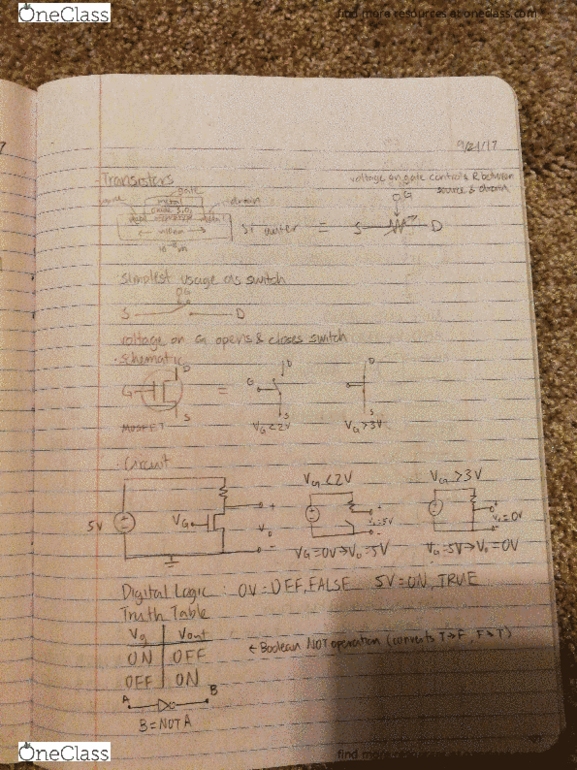 OneClass
find more resources at oneclass.com
9/21/17
Transistors
voltage on gate controls R between
source & drain
gate
drain
metal
G
Si wafer = S D
simplest usage as switch
G
S D
voltage on G opens & closes switch
· schematic
D D D
G = G
S S S
MOSFET VG<2V VG>3V
· Circuit
VG<2V VG>3V
5V VG + Vo - + Vo=5V - + Vo=0V -
VG=0V→Vo=5V VG=5V→Vo=0V
Digital Logic : 0V=OFF, FALSE 5V=ON, TRUE
Truth Table
Vg Vout
ON OFF
OFF ON
← Boolean NOT operation (converts T→F, F→T)
A B
B=NOT A
OneClass
find more resources at oneclass.com